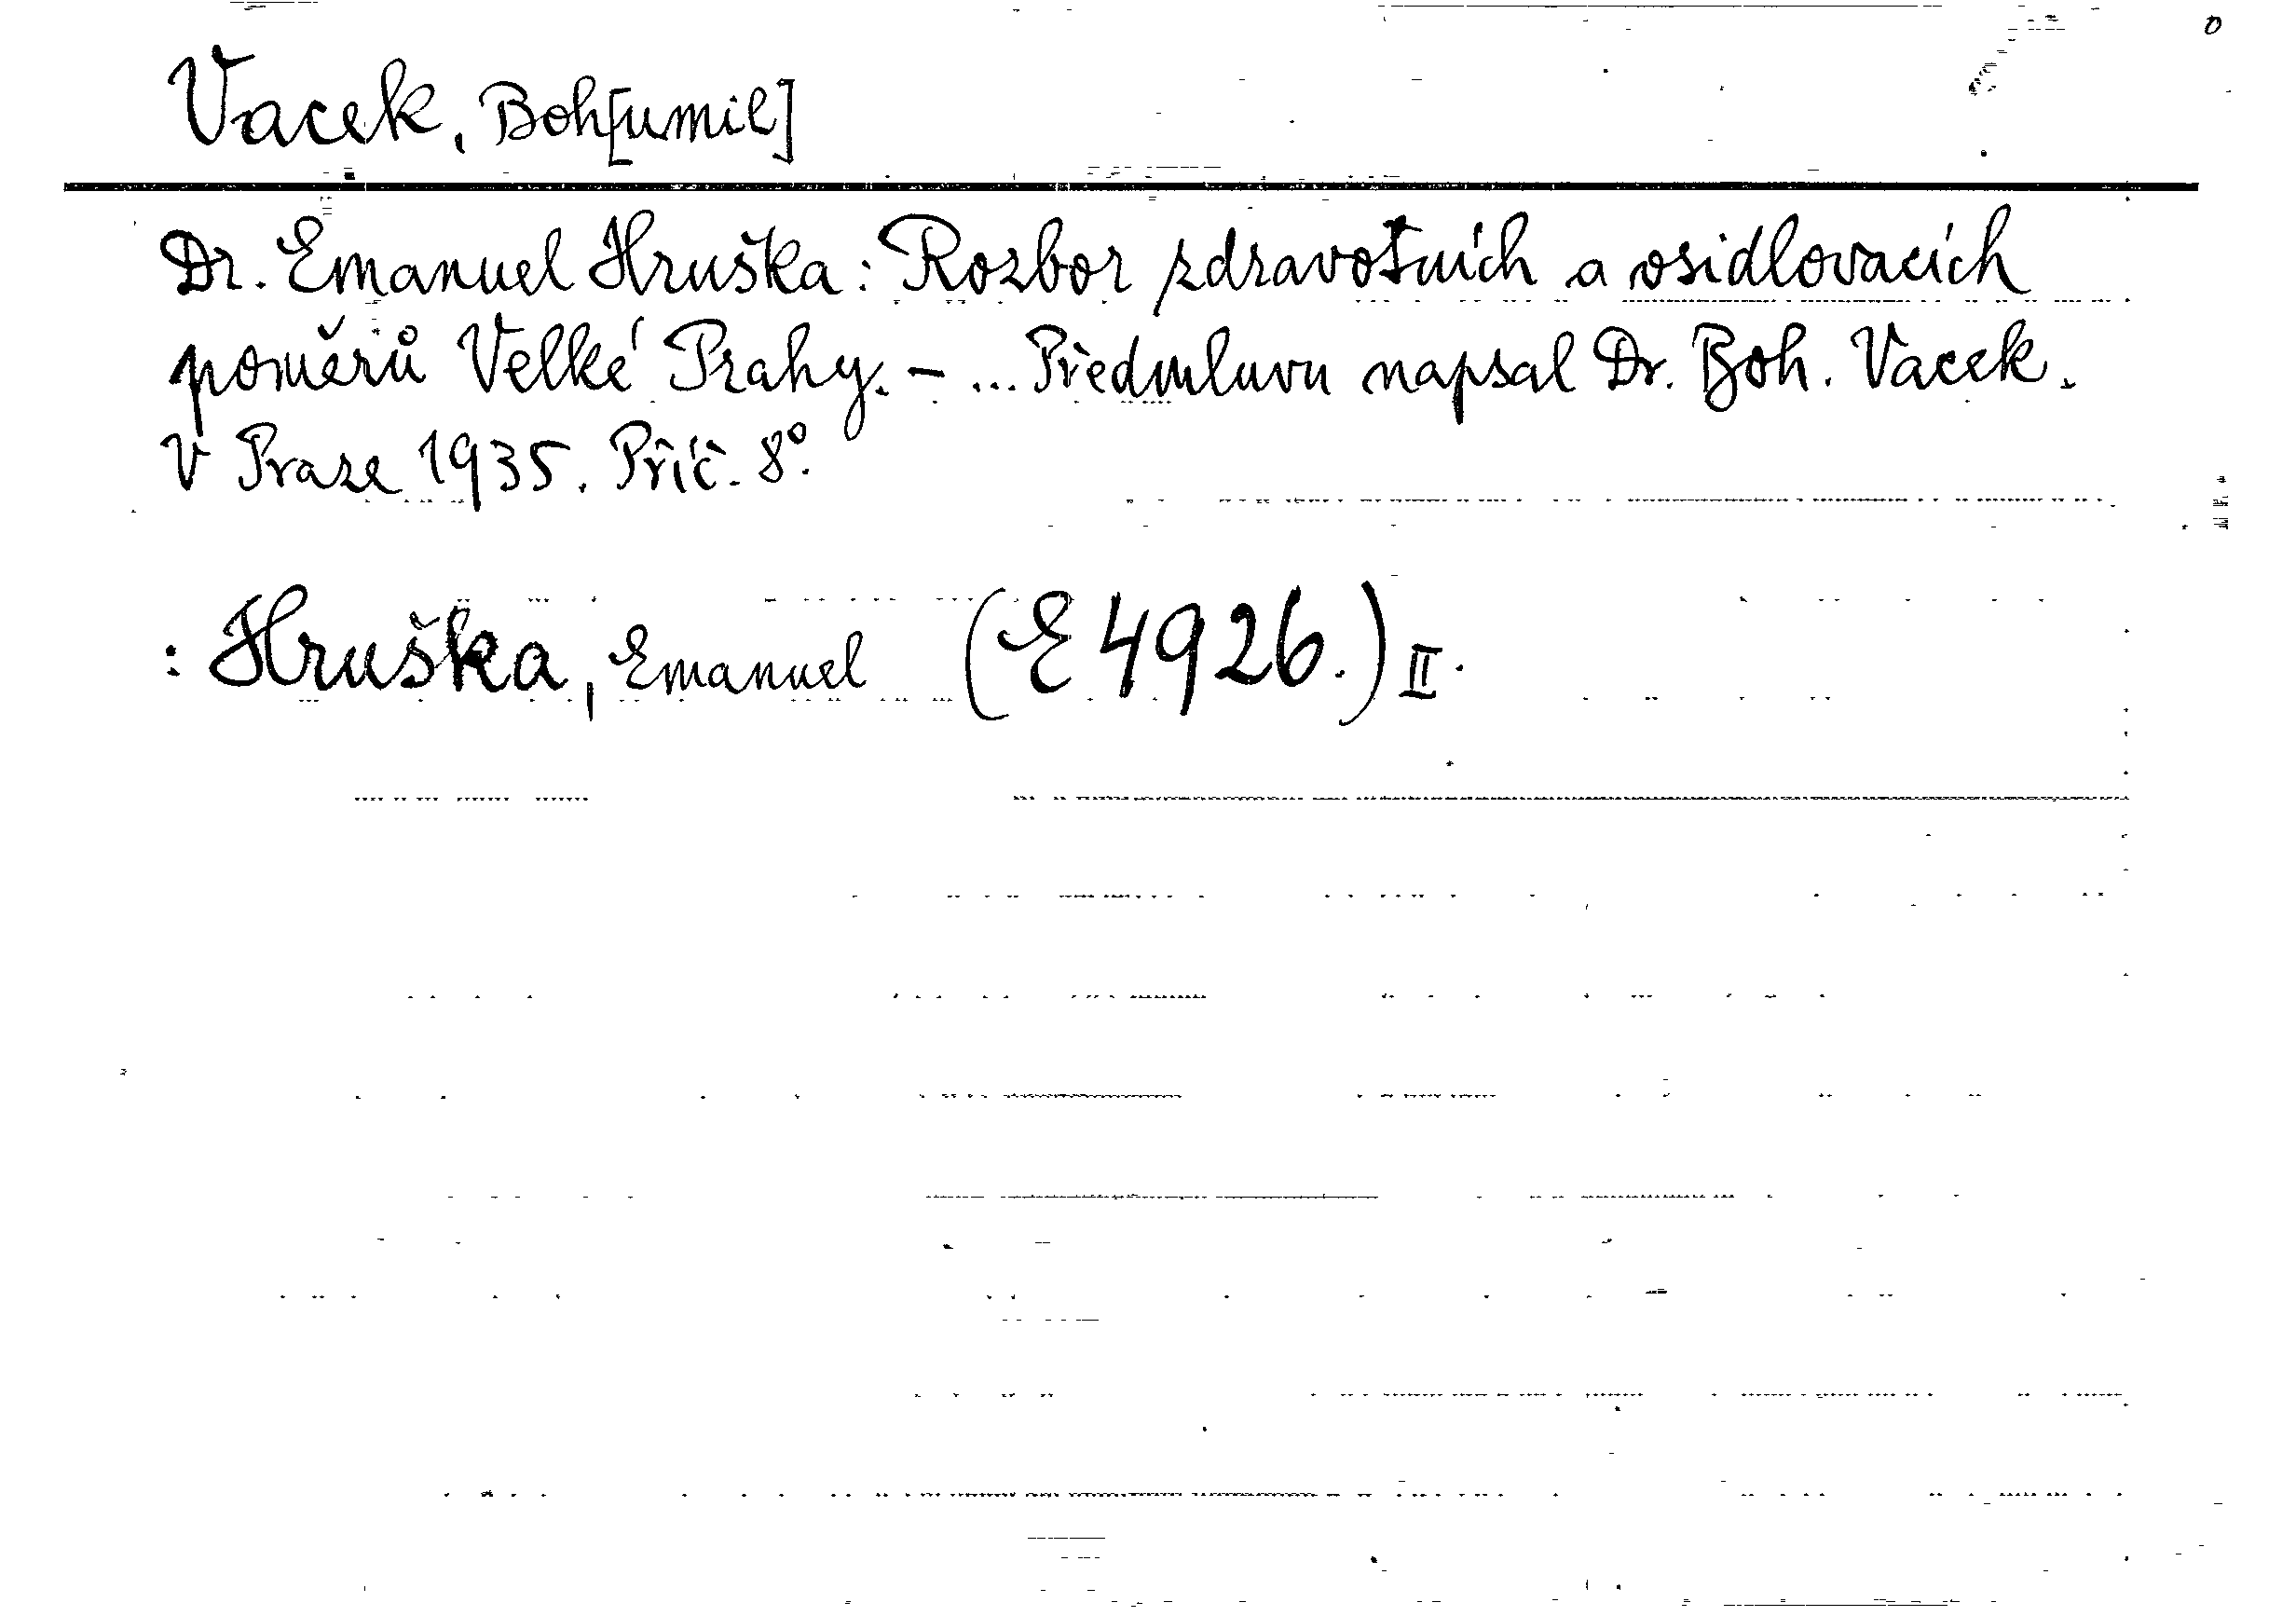 Vacek, Boh[umil]
Dr. Emanuel Hruška: Rozbor zdravotních a osidlovacích
poměrů Velké Prahy. - ... Předmluvu napsal Dr. Boh. Vacek.
V Praze 1935. Příč. 8°.
: Hruška, Emanuel (E 4926.) II.